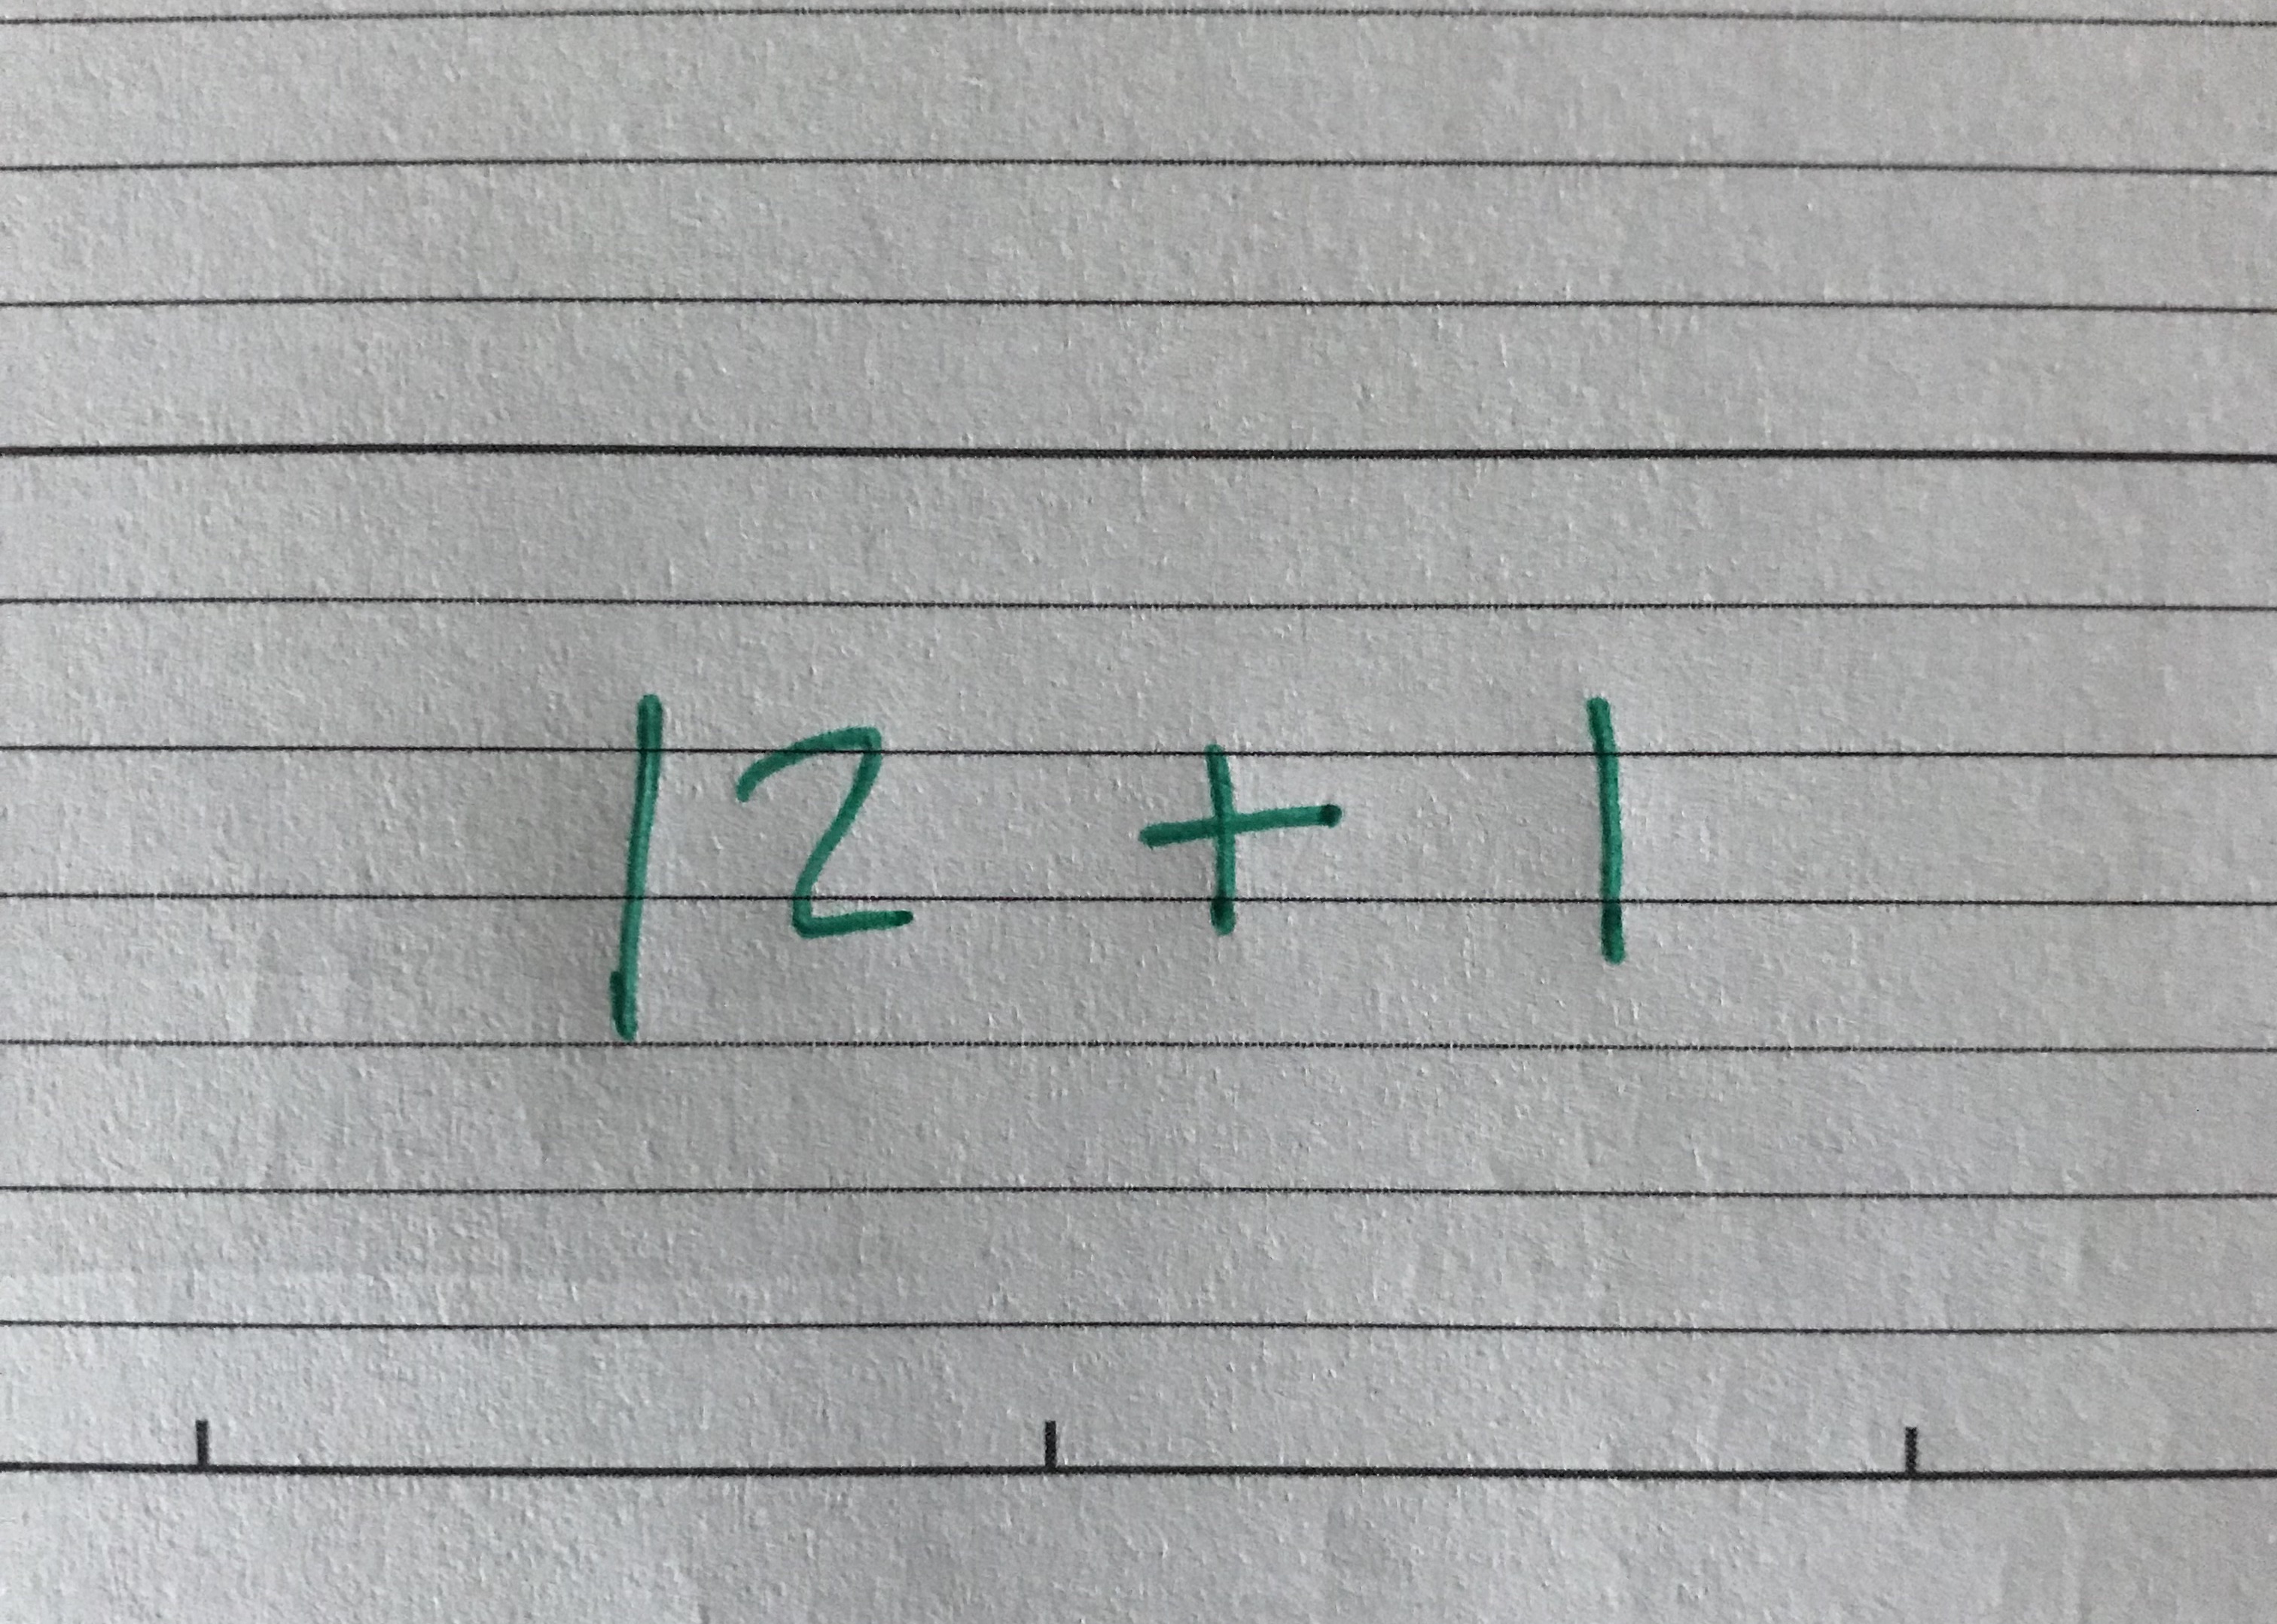 12 + 1